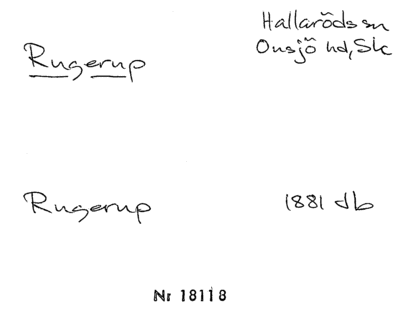 Hallaröds sn
Rugerup Onsjö hd, Sk
Rugerup 1881 db
Nr 18118